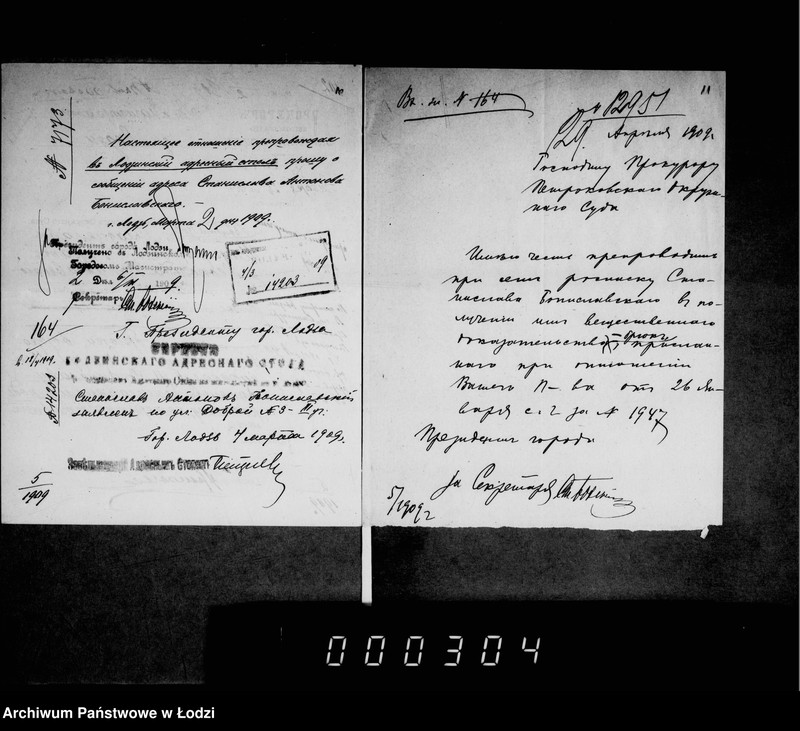 10
№ 7173
Настоящее отношение препровождая
в Лодзинский адресный столъ прошу о
сообщении адреса Станислава Антонова
Бониславского. —
г. Лодзь, Марта 2 дня 1909.
Президентъ города Лодзи,
Получено в Лодзинском
Городском Магистрате
2 Дня 6/III 1909
Секретарь
4/3 09
№ 14203
164
Г. Президенту гор. Лодзи
СПРАВКА
ЛОДЗИНСКАГО АДРЕСНАГО СТОЛА
№ 14203
Станислав Антонов Бониславский
заявлен по ул. Доброй № 3
Гор. Лодзь 4 марта 1909.
Адреснымъ Столомъ
5/1909
11
Вх. эл. № 164
№ 12951
29 Апреля 1909 г.
Господину Прокурору
Петроковского Окруж-
наго Суда
Имею честь препроводить
при сем росписку Ста-
нислава Бониславского в по-
лучении им вещественного
доказательства, прислан-
ного при отношении
Вашего П-ва от 26 Ян-
варя с. г. за № 1947
Президент города
за Секретаря
5/1909 г
000304
Archiwum Państwowe w Łodzi